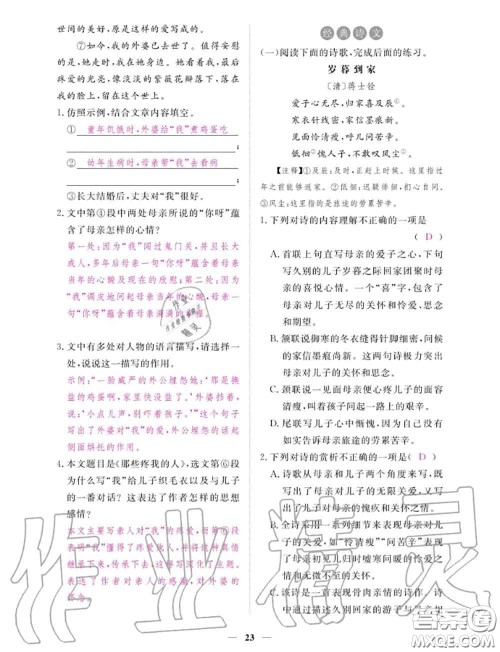 世间的美好,原是这样的爱写成的。
⑦如今,我的外婆已去世了。值得庆幸
的是,她走时,我在她身边。我默默目送我最
珠爱的光亮,像淡淡的紫薇花瓣落下,落下,
落在我的脸上。
1.仿照示例,结合文章内容填空。
① 童年饥饿时,外婆给“我”煮鸡蛋吃
② 幼年生病时,母亲帮“我”去看病
③长大结婚后,丈夫对“我”很好。
2.文中第④段中两处母亲所说的“你呀”蕴
含了母亲怎样的心情?
第一处:因为“我”闯过鬼门关,并且长大
成人,多年后母亲一句“你呀”蕴含着母亲
当年的心酸及现在的欣慰。第二处:因为
“我”调皮地问起母亲当年的心酸,母亲一
句“你呀”蕴含着母亲满满的
3.文中有多处对人物的语言描写,请选择一
处,说说这一描写的作用。
示例:“一脸威严的外公埋怨她:‘那是换
盐的鸡蛋啊,家里快没盐了。’外婆捂着
我,说:‘小点儿声,别吓着孩子。’”这个句子
写出了外婆对“我”的爱,外公埋怨的话起
侧面烘托的作用。
4.本文题目是《那些疼我的人》,选文第⑥段
为什么写“我”给儿子织毛衣以及与儿子
的一番对话?这表达了作者怎样的思想
感情?
本文主要写亲人对“我”的疼爱,而第⑥段
写“我”懂得了疼爱他人,并将这种真情
继承下来,传承下去,这样写深化了主题。
表达了作者对亲人的感恩,对外婆的
经典诗文
(一)阅读下面的诗歌,完成后面的练习。
岁暮到家
〔清〕蒋士铨
爱子心无尽,归家喜及辰①。
寒衣针线密,家信墨痕新。
见面怜清瘦,呼儿问苦辛。
低徊②愧人子,不敢叹风尘③。
【注释】①及辰:及时,正赶上时候。这里指过
年之前能够返家。②低徊:迟疑徘徊,扪心自问。
③风尘:这里指的是旅途的劳累苦辛。
1.下列对诗的内容理解不正确的一项是
( D )
A.首联上句直写母亲的爱子之心,下句
写久别的儿子岁暮之际回家团聚时母
亲的喜悦心情。一个“喜”字,包含了
了母亲对儿子无尽的关怀和怜爱、思
念和期望。
B.颔联说御寒的冬衣缝得针脚细密,问候
的家信墨痕尚新。这两句诗极力突出
了母亲对儿子的关怀和思念。
C.颈联说一见面母亲便心疼儿子的清瘦,
呼叫着孩子问起一路上的艰辛。
D.尾联写儿子心中惭愧,因为自己没有如
实告诉母亲旅途的劳累苦辛。
2.下列对诗的赏析不正确的一项是( D )
A.诗歌从母亲和儿子两个角度来写,既
写出了母亲对儿子的无限关爱,又写
出了儿子对母亲的无限关爱。
B.全诗采用一系列细节来表现母亲对儿子
的关爱,如“怜清瘦”“问苦辛”就表现
了母亲初见儿归时嘘寒问暖的怜爱之
情和无微不至的关怀。
C.该诗是一首表现骨肉亲情的诗作,诗
中通过描述久别回家的游子与
23